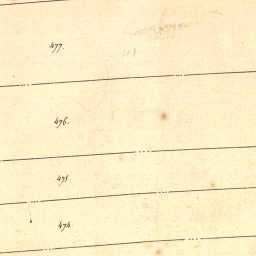 477.
476.
475
474